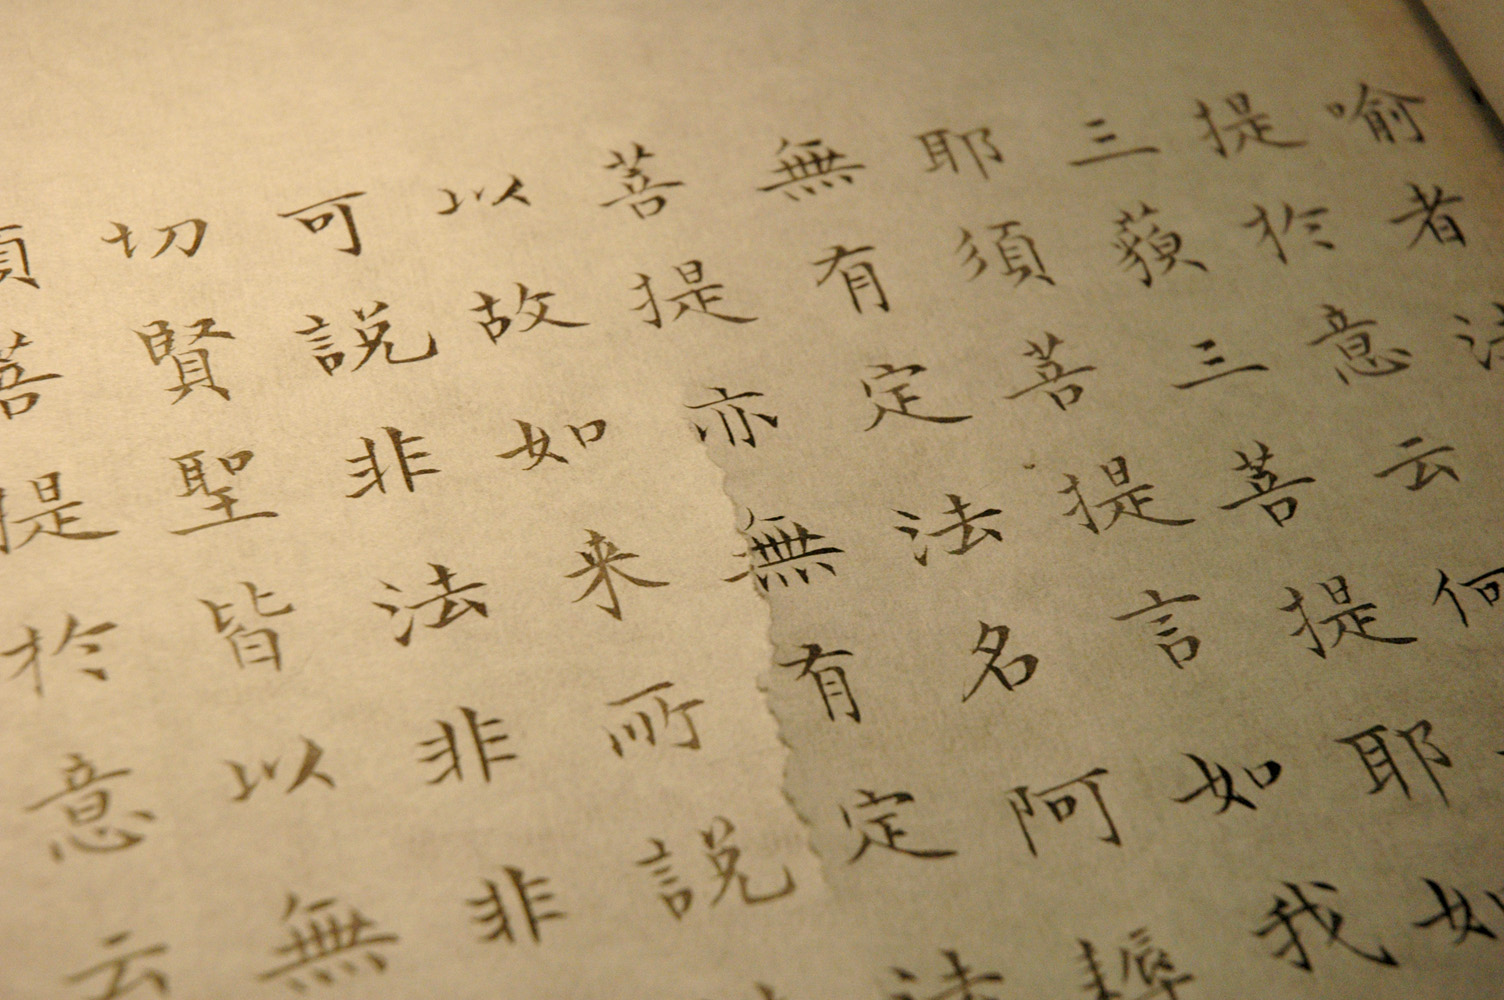 喻者法
提於意云何
三藐三菩提耶如
耶須菩提言如我
無有定法名阿耨
菩提亦無有定法
以故如来所説
可説非法非非
切賢聖皆以無
須菩提於意云